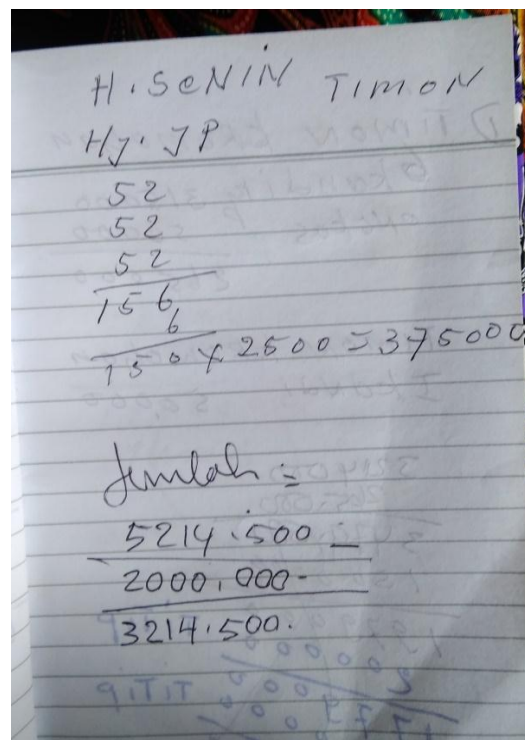 H. SENIN TIMON
Hj. JP
52
52
52
156
6
150 x 2500 = 375000
Jumlah =
5214.500 -
2000.000 -
3214.500.